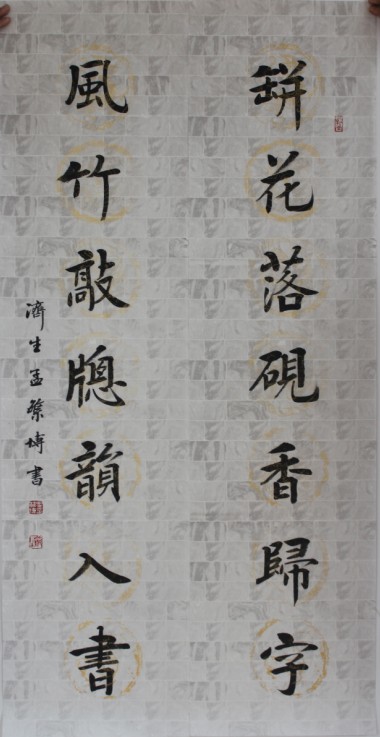 缾花落硯香歸字
風竹敲牕韻入書
濟生孟繁博書